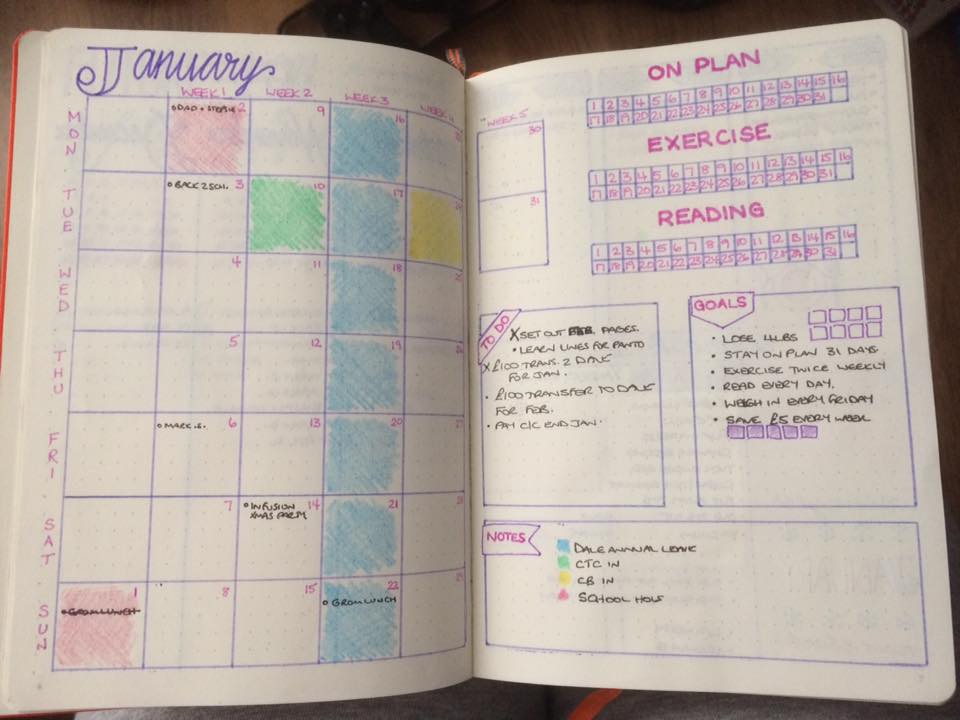 January
WEEK 1 WEEK 2 WEEK 3 WEEK 4
MON
• DAD + STEPH 2 9 16
TUE
• BACK 2 SCH. 3 10 17
WED
4 11 18
THU
5 12 19
FRI
• MARK.S. 6 13 20
SAT
7 • INFUSION 14 21
XMAS PARTY
SUN
1 8 15 22
• GROM LUNCH • GROM LUNCH
WEEK 5
30
31
ON PLAN
1 2 3 4 5 6 7 8 9 10 11 12 13 14 15 16
17 18 19 20 21 22 23 24 25 26 27 28 29 30 31
EXERCISE
1 2 3 4 5 6 7 8 9 10 11 12 13 14 15 16
17 18 19 20 21 22 23 24 25 26 27 28 29 30 31
READING
1 2 3 4 5 6 7 8 9 10 11 12 13 14 15 16
17 18 19 20 21 22 23 24 25 26 27 28 29 30 31
TO DO
X SET OUT FEB. PAGES.
• LEARN LINES FOR PANTO
X £100 TRANS. 2 DALE
FOR JAN.
• £100 TRANSFER TO DALE
FOR FEB.
• PAY C/C END JAN.
GOALS
• LOSE 4LBS
• STAY ON PLAN 31 DAYS.
• EXERCISE TWICE WEEKLY
• READ EVERY DAY.
• WEIGH IN EVERY FRIDAY
• SAVE £5 EVERY WEEK
NOTES
DALE ANNUAL LEAVE
CTC IN
CB IN
SCHOOL HOLS